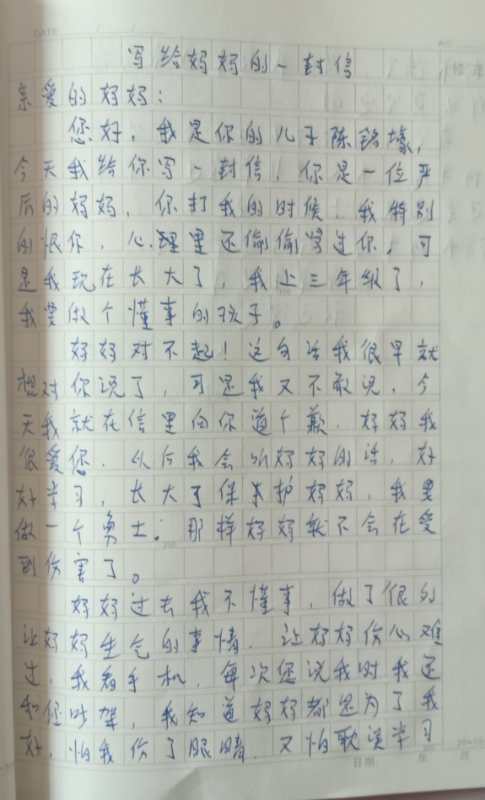 写给妈妈的一封信
亲爱的妈妈：
您好，我是你的儿子陈铭
今天我给你写一封信，你是一位严
后的妈妈，你打我的时候，我特别
的恨你，心里还偷偷骂过你，可
是我现在长大了，我上三年级了，
我要做个懂事的孩子。
妈妈对不起！这句话我很早就
想对你说了，可是我又不敢说，今
天我就在信里向你道个歉，妈妈我
很爱您，以后我会听妈妈的话，好
好学习，长大了保护妈妈，我要
做一个勇士；那样妈妈就不会在受
到伤害了。
妈妈过去我不懂事，做了很多
让妈妈生气的事情，让妈妈伤心难
过，我看手机，每次您说我时我还
和您吵架，我知道妈妈都是为了我
好，怕我伤了眼睛，又怕耽误学习
日期